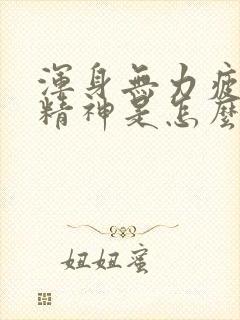 渾身無力疲
精神是怎麼
妞妞蜜